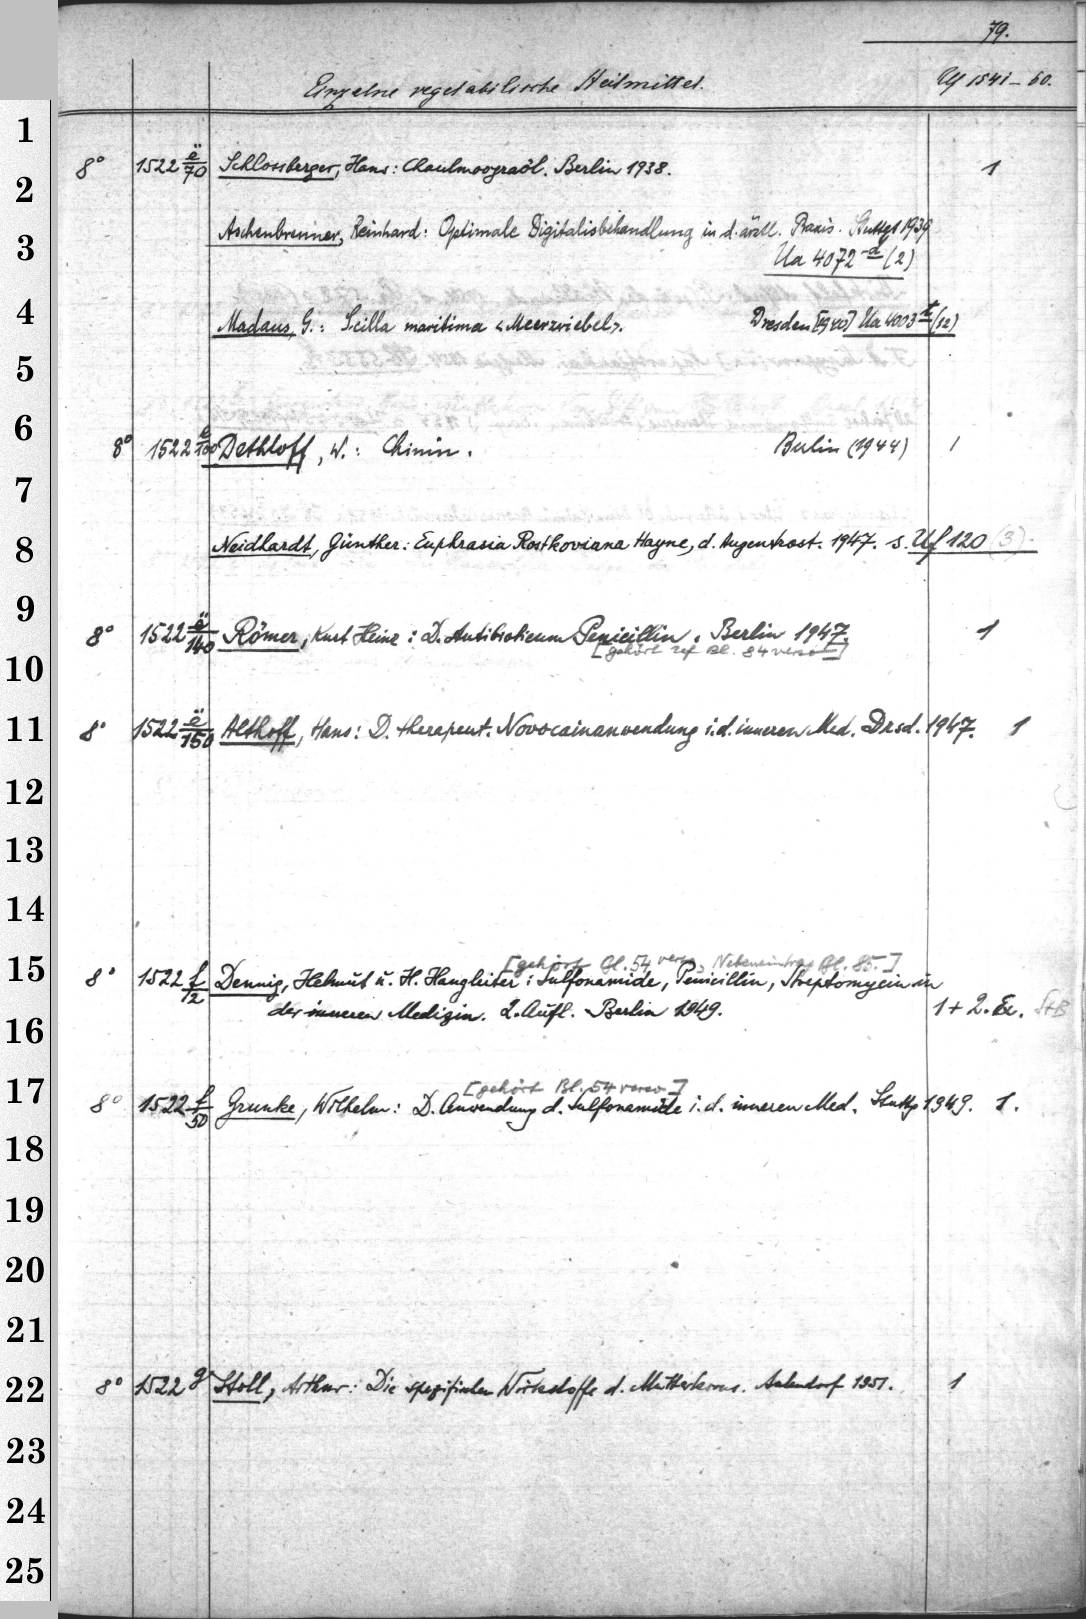 79.
Einzelne vegetabilische Heilmittel. Uf 1541-60.
1
8° 1522 ë/70 Schlossberger, Hans: Chaulmoograöl. Berlin 1938. 1
2
Aschenbrenner, Reinhard: Optimale Digitalisbehandlung in d. ärztl. Praxis. Stuttgt 1939
3
Ua 4072 d (2)
4
Madaus, G.: Scilla maritima <Meerzwiebel>. Dresden [1940] Ua 4003 (12)
5
6
8° 1522 ë/100 Dethloff, W.: Chinin. Berlin (1944) 1
7
8
Neidhardt, Günther: Euphrasia Rostkoviana Hayne, d. Augentrost. 1947. s. Uf 120 (3).
9
8° 1522 ë/140 Römer, Kurt Heinz: D. Antibioticum Penicillin. Berlin 1947. 1
[gehört auf Bl. 84 verso]
10
11
8° 1522 ë/150 Althoff, Hans: D. therapeut. Novocainanwendung i. d. inneren Med. Drsd. 1947. 1
12
13
14
[gehört Bl. 54 verso, Nebeneintrag Bl. 85.]
15
8° 1522 f/2 Dennig, Helmut u. H. Hangleiter: Sulfonamide, Penicillin, Streptomycin in
der inneren Medizin. 2. Aufl. Berlin 1949. 1 + 2. Ex. St+B
16
[gehört Bl. 54 verso]
17
8° 1522 f/50 Grunke, Wilhelm: D. Anwendung d. Sulfonamide i. d. inneren Med. Stuttg 1949. 1.
18
19
20
21
22
8° 1522 g Stoll, Arthur: Die spezifischen Wirkstoffe d. Mutterkorns. Aulendorf 1951. 1
23
24
25